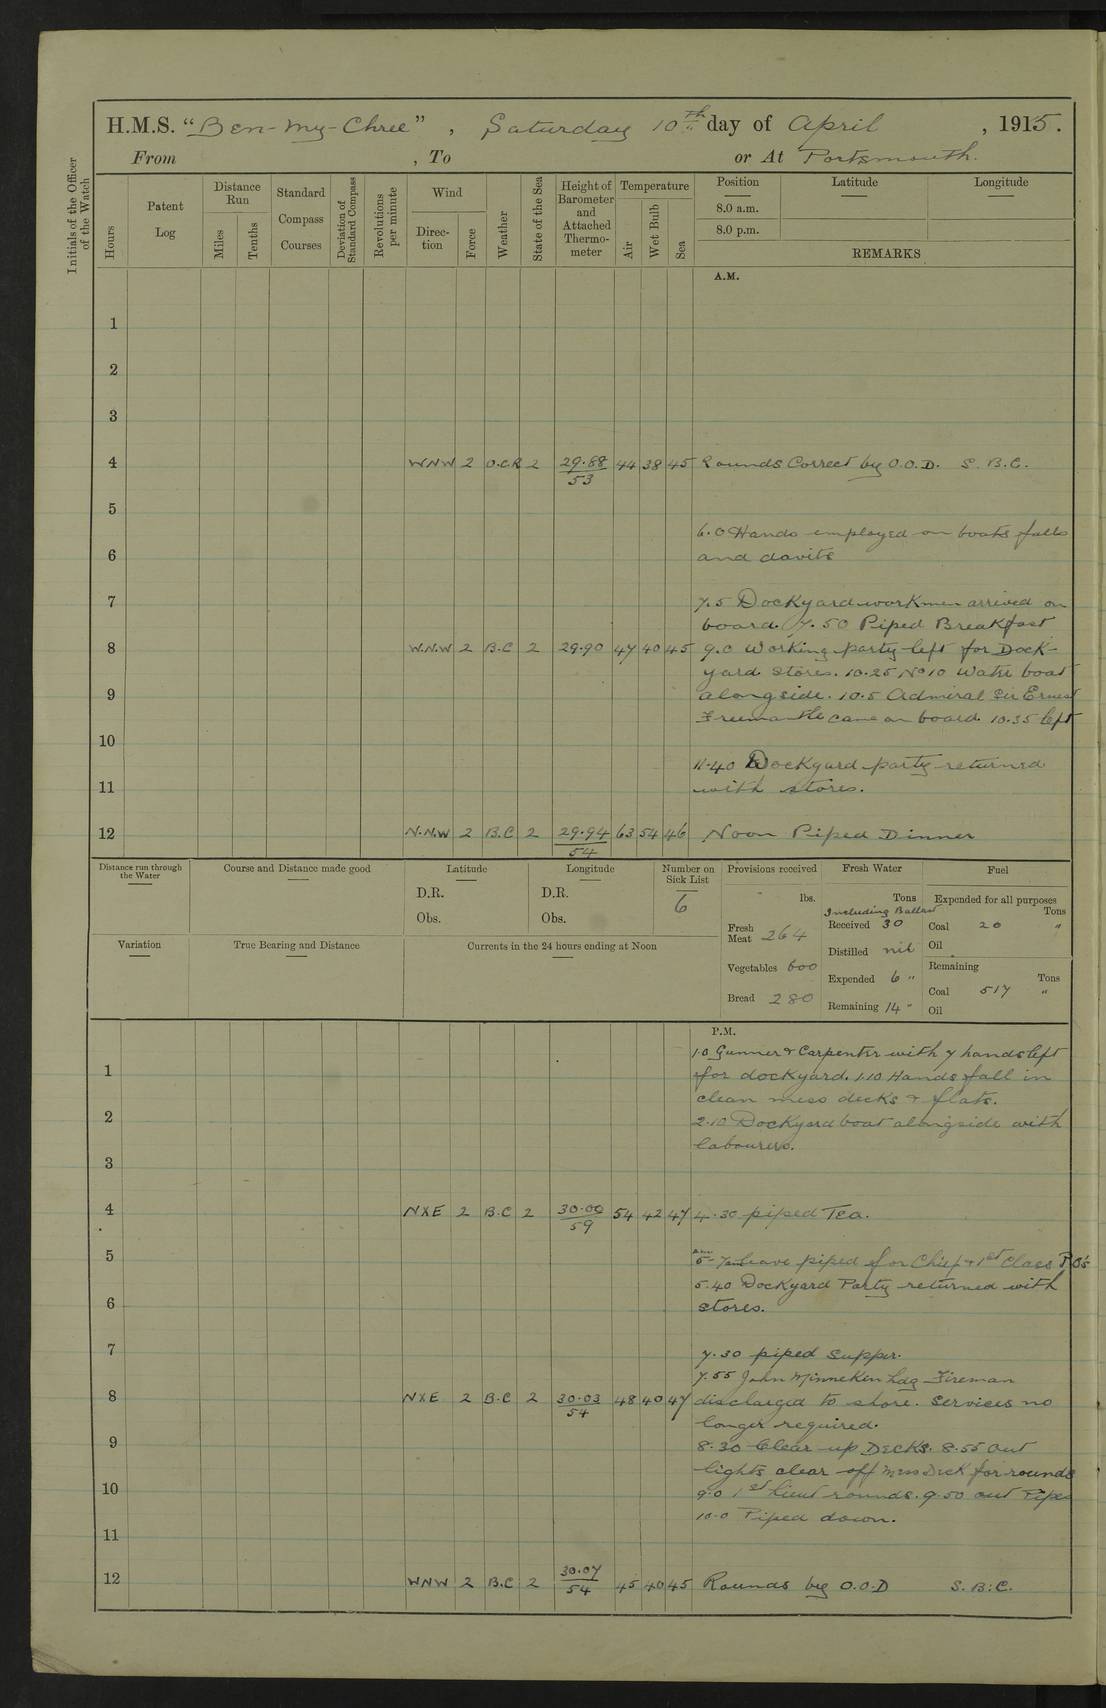 H.M.S. "Ben-my-Chree", Saturday 10th day of April, 1915.
From , To or At Portsmouth.
Initials of the Officer of the Watch
Hours
Patent Log
Distance Run
Miles
Tenths
Standard Compass Courses
Deviation of Standard Compass
Revolutions per minute
Wind
Direction
Force
Weather
State of the Sea
Height of Barometer and Attached Thermometer
Temperature
Air
Wet Bulb
Sea
Position
8.0 a.m.
8.0 p.m.
Latitude
Longitude
REMARKS
A.M.
1
2
3
4 WNW 2 O.C.R 2 29.88 53 44 38 45 Rounds Correct by O.O.D. S.B.C.
5
6.0 Hands employed on boats falls
6 and davits
7 7.5 Dockyard workmen arrived on
board. 7.50 Piped Breakfast
8 W.N.W 2 B.C 2 29.90 47 40 45 9.0 Working party left for Dock-
yard stores. 10.25 No 10 Water boat
9 alongside. 10.5 Admiral Sir Ernest
Freemantle came on board. 10.35 left
10
11.40 Dockyard party returned
11 with stores.
12 N.N.W 2 B.C 2 29.94 54 63 54 46 Noon Piped Dinner
Distance run through the Water
Course and Distance made good
Latitude
D.R.
Obs.
Longitude
D.R.
Obs.
Number on Sick List
6
Provisions received
lbs.
Fresh Meat 264
Vegetables 600
Bread 280
Fresh Water
Tons
Including Ballast
Received 30
Distilled nil
Expended 6 "
Remaining 14 "
Fuel
Expended for all purposes
Tons
Coal 20 "
Oil
Remaining
Tons
Coal 517 "
Oil
Variation
True Bearing and Distance
Currents in the 24 hours ending at Noon
P.M.
1.0 Gunner & Carpenter with 7 hands left
1 for dockyard. 1.10 Hands fall in
clean mess decks & flats.
2 2.10 Dockyard boat alongside with
labourers.
3
4 NXE 2 B.C 2 30.00 59 54 42 47 4.30 piped Tea.
5 leave piped for Chief & 1st Class P.O's
5.40 Dockyard Party returned with
6 stores.
7 7.30 piped supper.
7.55 John Minneken Ldg Fireman
8 NXE 2 B.C 2 30.03 54 48 40 47 discharged to shore. Services no
longer required.
9 8.30 Clear up Decks. 8.55 Out
lights clear off Mess Deck for rounds
10 9.0 1st Lieut rounds. 9.50 out Pipes
10.0 Piped down.
11
12 WNW 2 B.C 2 30.07 54 45 40 45 Rounds by O.O.D S.B.C.